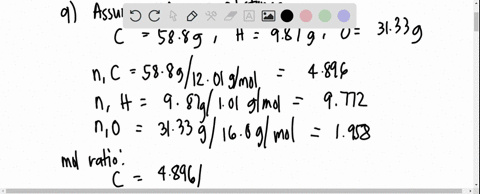 a) Assu
C = 58.8g , H = 9.87g , O = 31.33g
n, C = 58.8g / 12.01 g/mol = 4.896
n, H = 9.87g / 1.01 g/mol = 9.772
n, O = 31.33 g / 16.0 g/mol = 1.958
mol ratio:
C = 4.896/